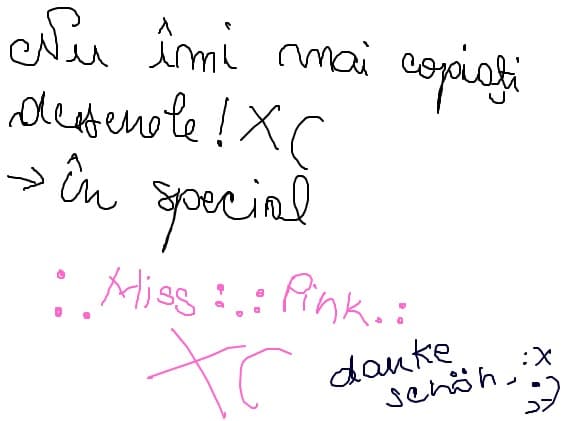 Nu îmi mai copiați
desenele! XC
→ în special
:. Miss :. .: Pink .:
XC
danke :x
schön. :))